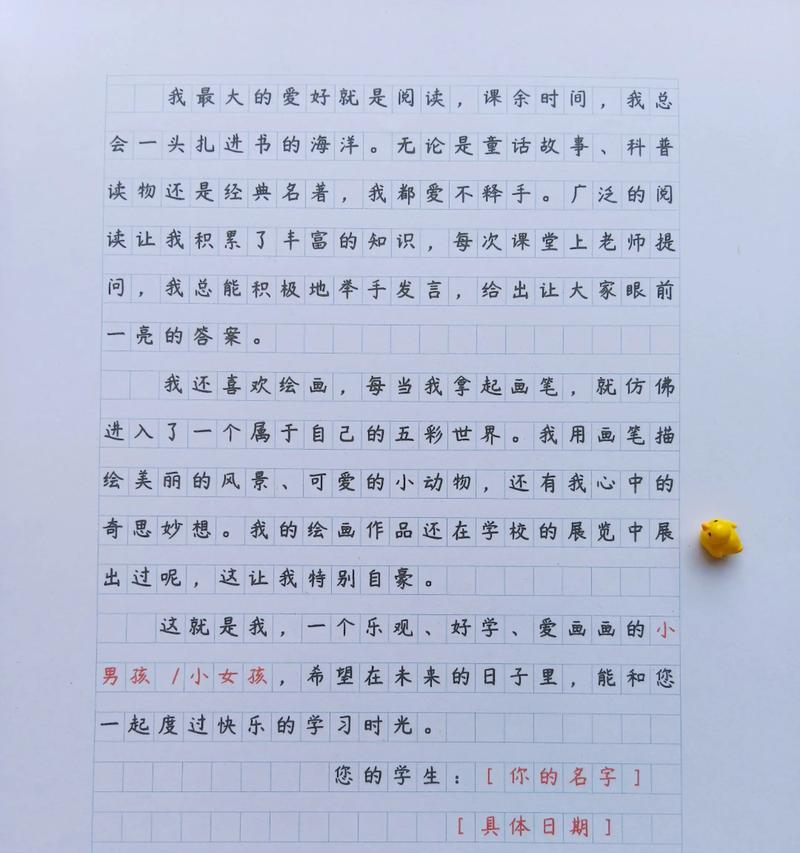 我最大的爱好就是阅读，课余时间，我总
会一头扎进书的海洋。无论是童话故事、科普
读物还是经典名著，我都爱不释手。广泛的阅
读让我积累了丰富的知识，每次课堂上老师提
问，我总能积极地举手发言，给出让大家眼前
一亮的答案。
我还喜欢绘画，每当我拿起画笔，就仿佛
进入了一个属于自己的五彩世界。我用画笔描
绘美丽的风景、可爱的小动物，还有我心中的
奇思妙想。我的绘画作品还在学校的展览中展
出过呢，这让我特别自豪。
这就是我，一个乐观、好学、爱画画的小
男孩/小女孩，希望在未来的日子里，能和您
一起度过快乐的学习时光。
您的学生：[你的名字]
[具体日期]